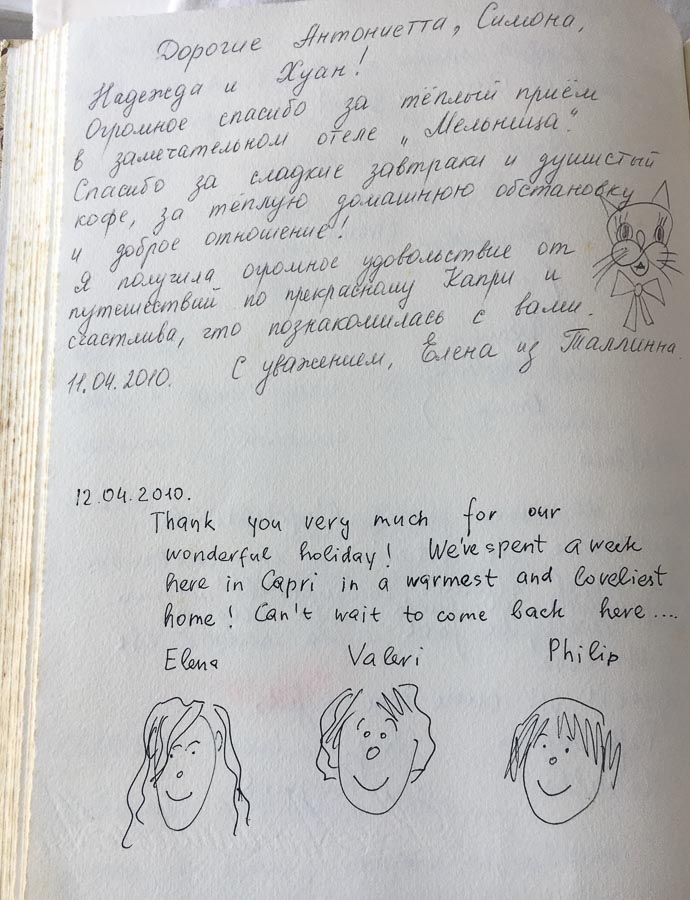 Дорогие Антониетта, Симона,
Надежда и Хуан!
Огромное спасибо за тёплый приём
в замечательном отеле „Мельница".
Спасибо за сладкие завтраки и душистый
кофе, за тёплую домашнюю обстановку
и доброе отношение!
Я получила огромное удовольствие от
путешествий по прекрасному Капри и
счастлива, что познакомилась с вами.
11.04.2010. С уважением, Елена из Таллинна.
12.04.2010.
Thank you very much for our
wonderful holiday! We've spent a week
here in Capri in a warmest and loveliest
home! Can't wait to come back here....
Elena Valeri Philip